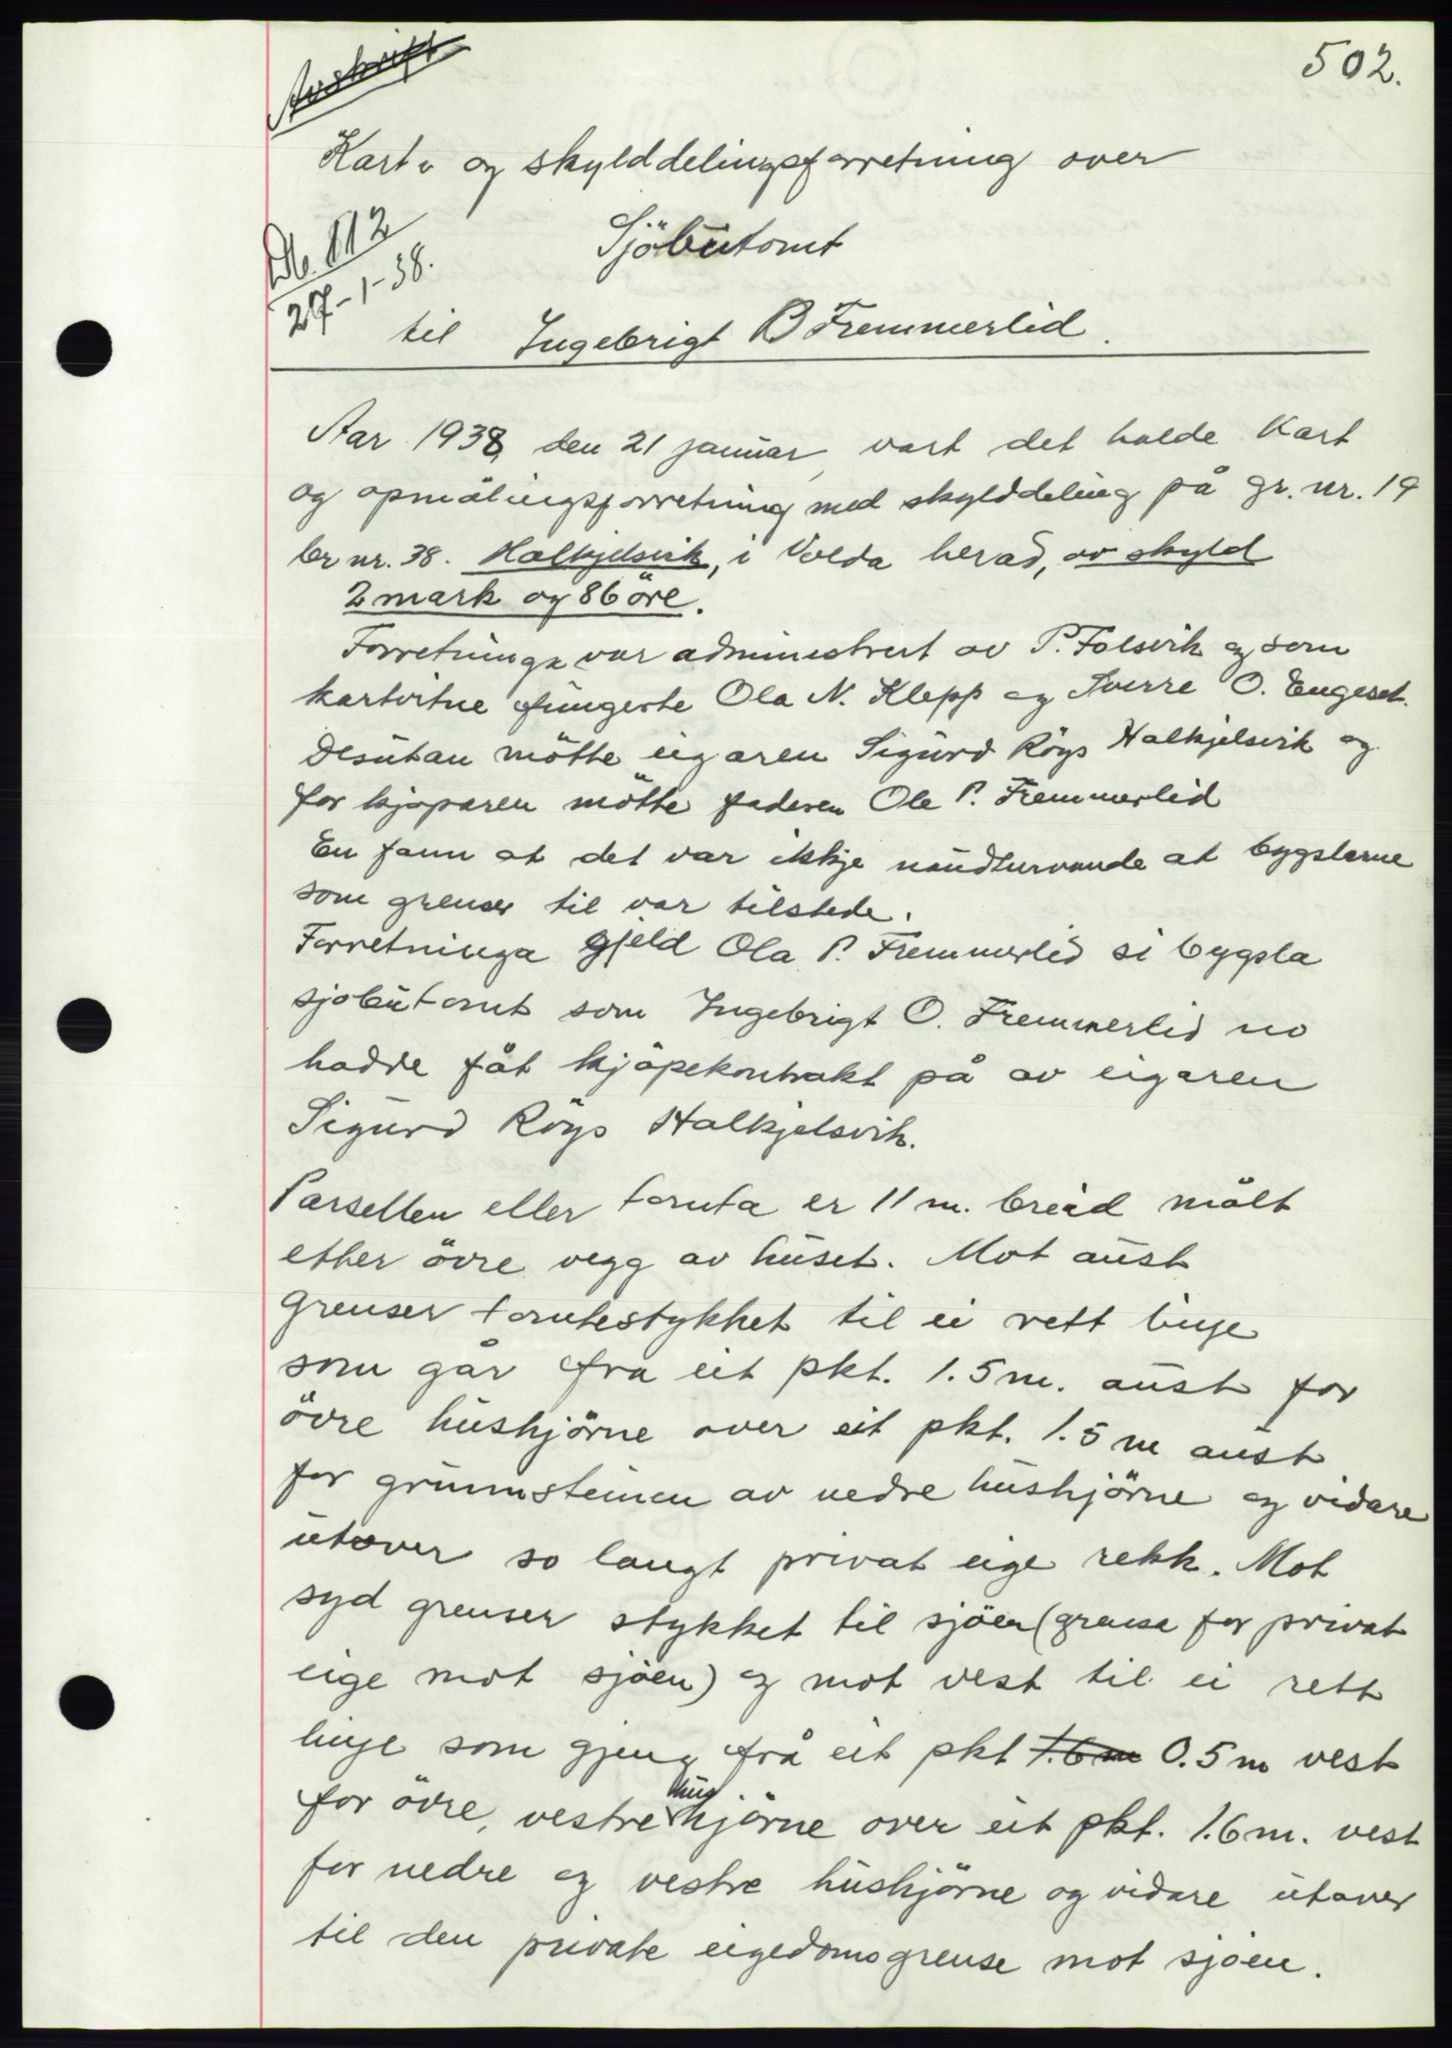 502.
Avskrift
Kart- og skylddelingsforretning over
Db. 112
27-1-38.
Sjöbutomt
til Ingebrigt B Fremmerlid.
Aar 1938, den 21 januar, vart det halde Kart
og opmålingsforretning med skylddeling på gr. nr. 19
br nr. 38. Halkjelsvik, i Volda herad, av skyld
2 mark og 86 öre.
Forretninga var administrert av P. Folsvik og som
kartvitne fungerte Ola N. Klepp og Sverre O. Engeset.
Desutan mötte eigaren Sigurd Röys Halkjelsvik og
for kjøparen mötte faderen Ole P. Fremmerlid
En fann at det var ikkje naudturvande at bygslarne
som grenser til var tilstede.
Forretninga gjeld Ola P. Fremmerlid si bygsla
sjobutomt som Ingebrigt O. Fremmerlid no
hadde fåt kjöpekontrakt på av eigaren
Sigurd Röys Halkjelsvik.
Parsellen eller tomta er 11 m. breid målt
etter övre vegg av huset. Mot aust
grenser tomtestykket til ei rett linje
som går fra eit pkt. 1.5 m. aust for
övre hushjörne over eit pkt. 1.5 m aust
for grunnsteinen av nedre hushjörne og vidare
utover so langt privat eige rekk. Mot
syd grenser stykket til sjöen (grensa for privat
eige mot sjöen) og mot vest til ei rett
linje som gjeng frå eit pkt 1.6 m 0.5 m vest
for övre, vestre hushjörne over eit pkt. 1.6 m. vest
for nedre og vestre hushjörne og vidare utover
til den private eigedomsgrense mot sjöen.